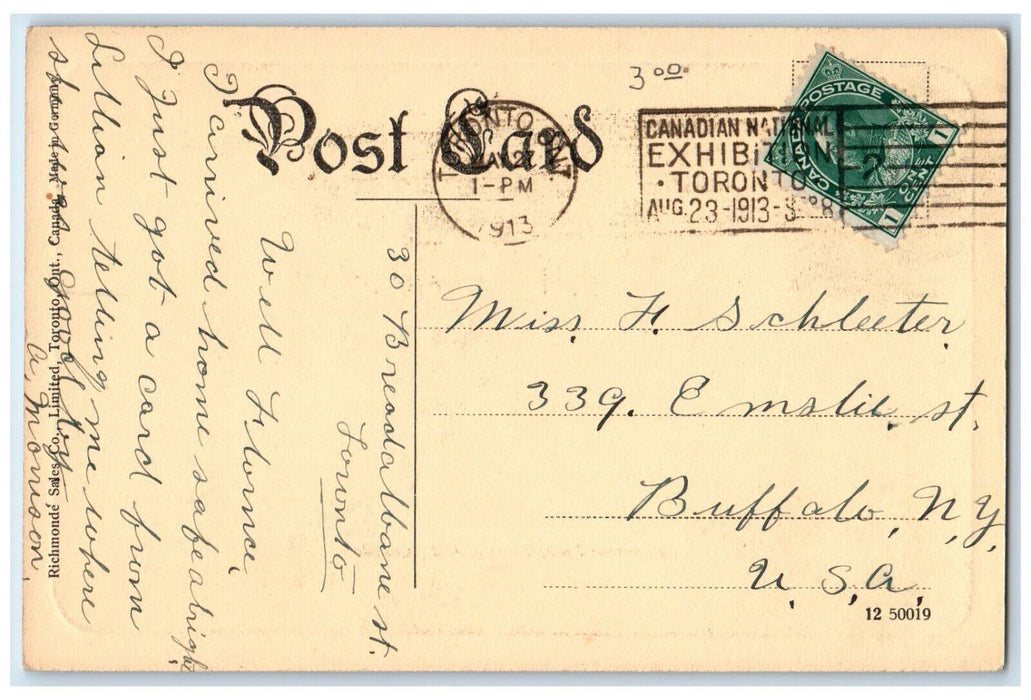 Post Card
3 00
TORONTO, ONT
1-PM
1913
CANADIAN NATIONAL
EXHIBITION
TORONTO
AUG. 23-1913-SEP 8
2
CANADA POSTAGE
1 ONE CENT 1
Miss. F. Schleeter
339. Emslie, st.
Buffalo, N,Y,
U, S,A,
12 50019
30 Breadalbane st.
Toronto
Well Florence,
I arrived home safe a bright
I Just got a card from
Lillian telling me where
she was good by
A, Morrison,
Richmondé Sales Co., Limited, Toronto, Ont., Canada. Made in Germany